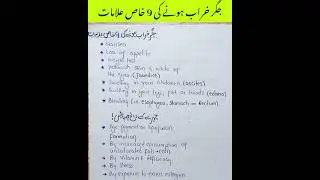 جگر خراب ہونے کی 9 خاص علامات
جگر خراب ہونے کی 9 خاص علامات
Nausea
Loss of appetite
Yellowish skin & white of
the eyes (Jaundice)
Swelling in your abdomen (ascites)
Swelling in your legs, feet or hands (edema)
Bleeding (in esophagus, stomach or Rectum)
Age pigment or lipofuscin
formation
By increased consumption of
unsaturated fats
By vitamin E deficiency
By stress
By exposure to excess estrogen